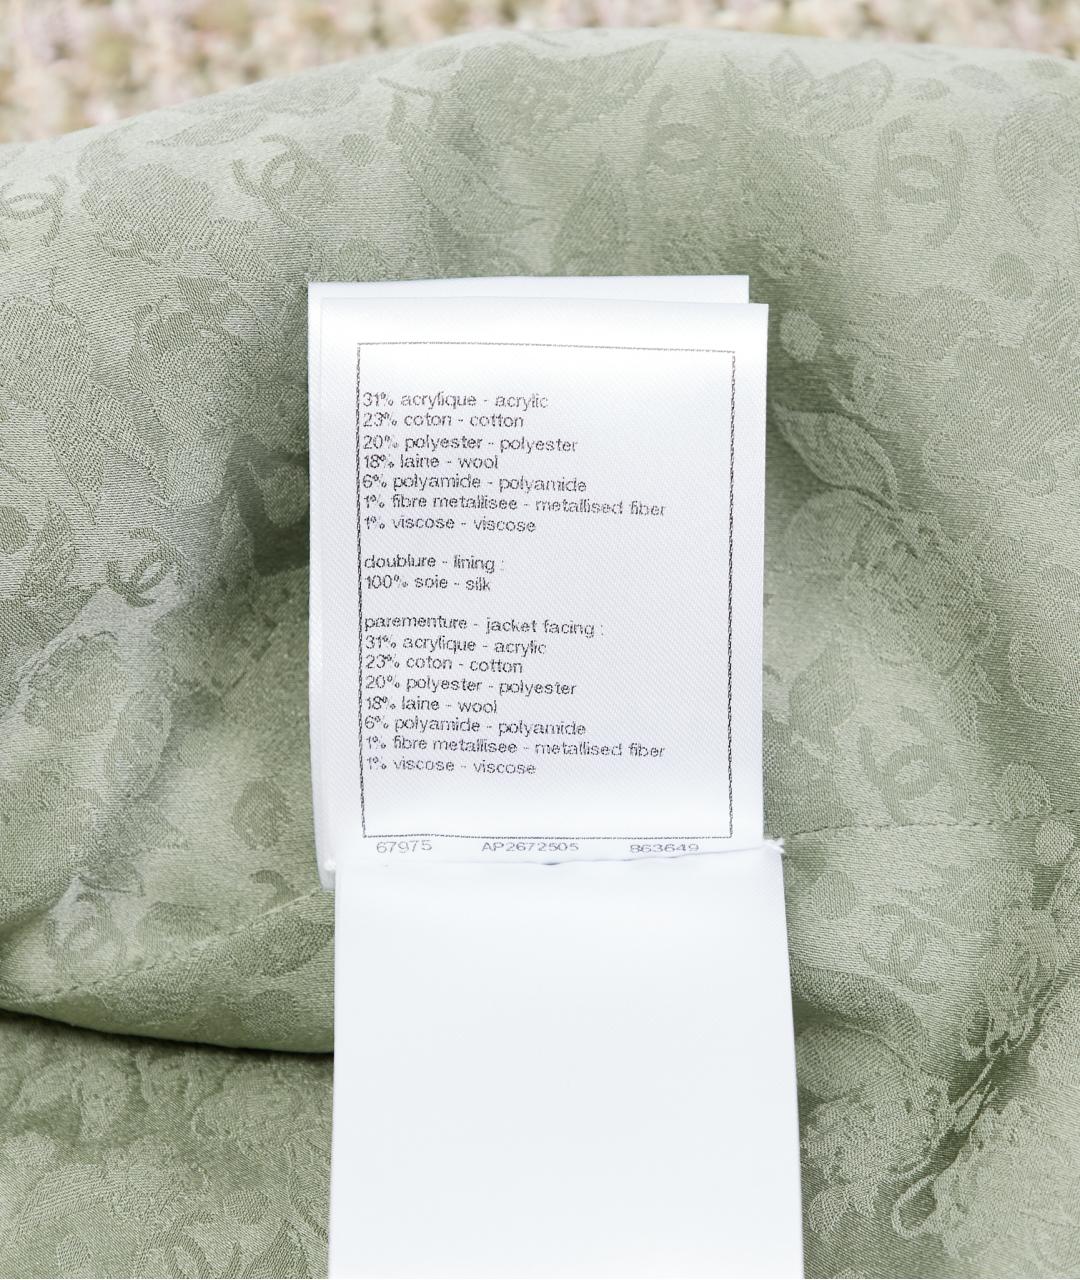 31% acrylique - acrylic
23% coton - cotton
20% polyester - polyester
18% laine - wool
6% polyamide - polyamide
1% fibre metallisee - metallised fiber
1% viscose - viscose
doublure - lining :
100% soie - silk
parementure - jacket facing :
31% acrylique - acrylic
23% coton - cotton
20% polyester - polyester
18% laine - wool
6% polyamide - polyamide
1% fibre metallisee - metallised fiber
1% viscose - viscose
67975 AP2672505 863649